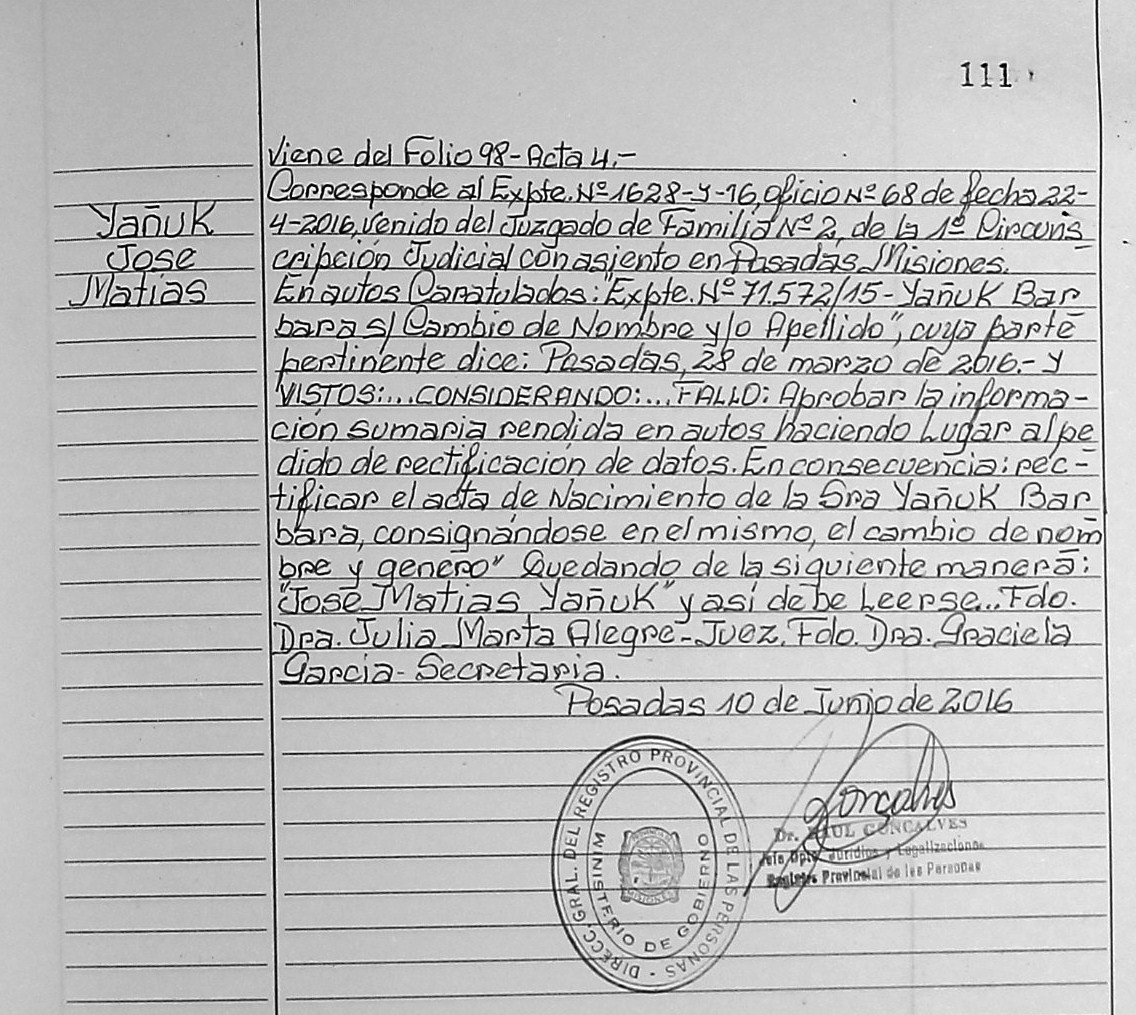 111
Viene del Folio 98-Acta 4.-
Corresponde al Expte. Nº 1628-Y-16, Oficio Nº 68 de fecha 22-
4-2016, venido del Juzgado de Familia Nº 2, de la 1º Circuns
cripción Judicial con asiento en Posadas, Misiones.
En autos Caratulados: "Expte. Nº 71.572/15-Yañuk Bar
bara s/ Cambio de Nombre y/o Apellido", cuya parte
pertinente dice: Posadas, 28 de marzo de 2016.- Y
VISTOS:...CONSIDERANDO:...FALLO: Aprobar la informa-
ción sumaria rendida en autos haciendo Lugar al pe
dido de rectificación de datos. En consecuencia: rec-
tificar el acta de Nacimiento de la Sra Yañuk Bar
bara, consignándose en el mismo, el cambio de nom
bre y genero" Quedando de la siguiente manera:
"José Matias Yañuk" y así debe Leerse... Fdo.
Dra. Julia Marta Alegre-Juez. Fdo. Dra. Graciela
Garcia-Secretaria.
Posadas 10 de Junio de 2016
Yañuk
Jose
Matias
DIRECC. GRAL. DEL REGISTRO PROVINCIAL DE LAS PERSONAS -
MINISTERIO DE GOBIERNO
MISIONES
Goncalves
Dr. RAUL GONCALVES
Jefe Dpto. Juridico y Legalizaciones
Registro Provincial de las Personas